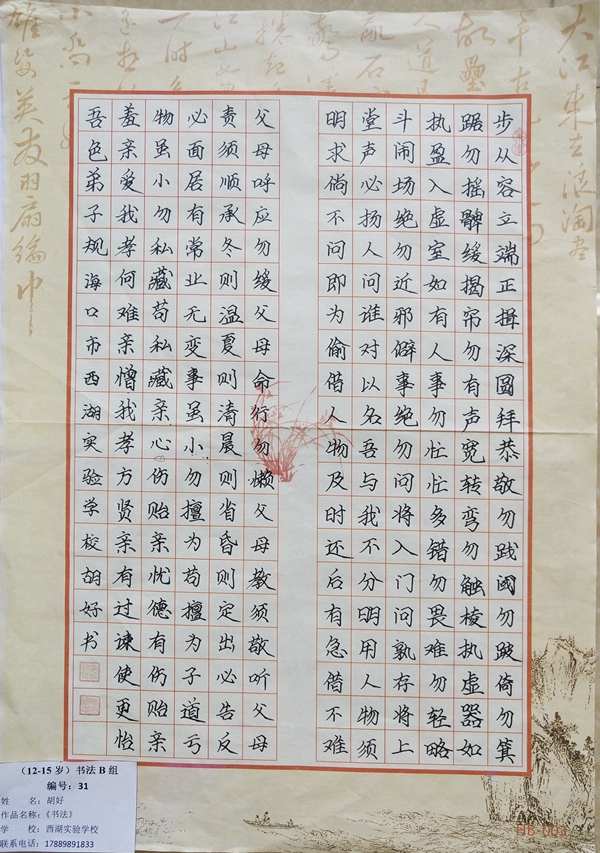 大江東去浪淘尽
步从容立端正揖深圆拜恭敬勿践阈勿跛倚勿箕
踞勿摇髀缓揭帘勿有声宽转弯勿触棱执虚器如
执盈入虚室如有人事勿忙忙多错勿畏难勿轻略
斗闹场绝勿近邪僻事绝勿问将入门问孰存将上
堂声必扬人问谁对以名吾与我不分明用人物须
明求倘不问即为偷借人物及时还后有急借不难
父母呼应勿缓父母命行勿懒父母教须敬听父母
责须顺承冬则温夏则凊晨则省昏则定出必告反
必面居有常业无变事虽小勿擅为苟擅为子道亏
物虽小勿私藏苟私藏亲心伤贻亲忧德有伤贻亲
羞亲爱我孝何难亲憎我孝方贤亲有过谏使更怡
吾色弟子规海口市西湖实验学校胡好书
雄姿英发羽扇纶巾
（12-15 岁）书法 B 组
编号：31
姓 名：胡好
作品名称：《书法》
学 校：西湖实验学校
联系电话：17889891833
HB-003